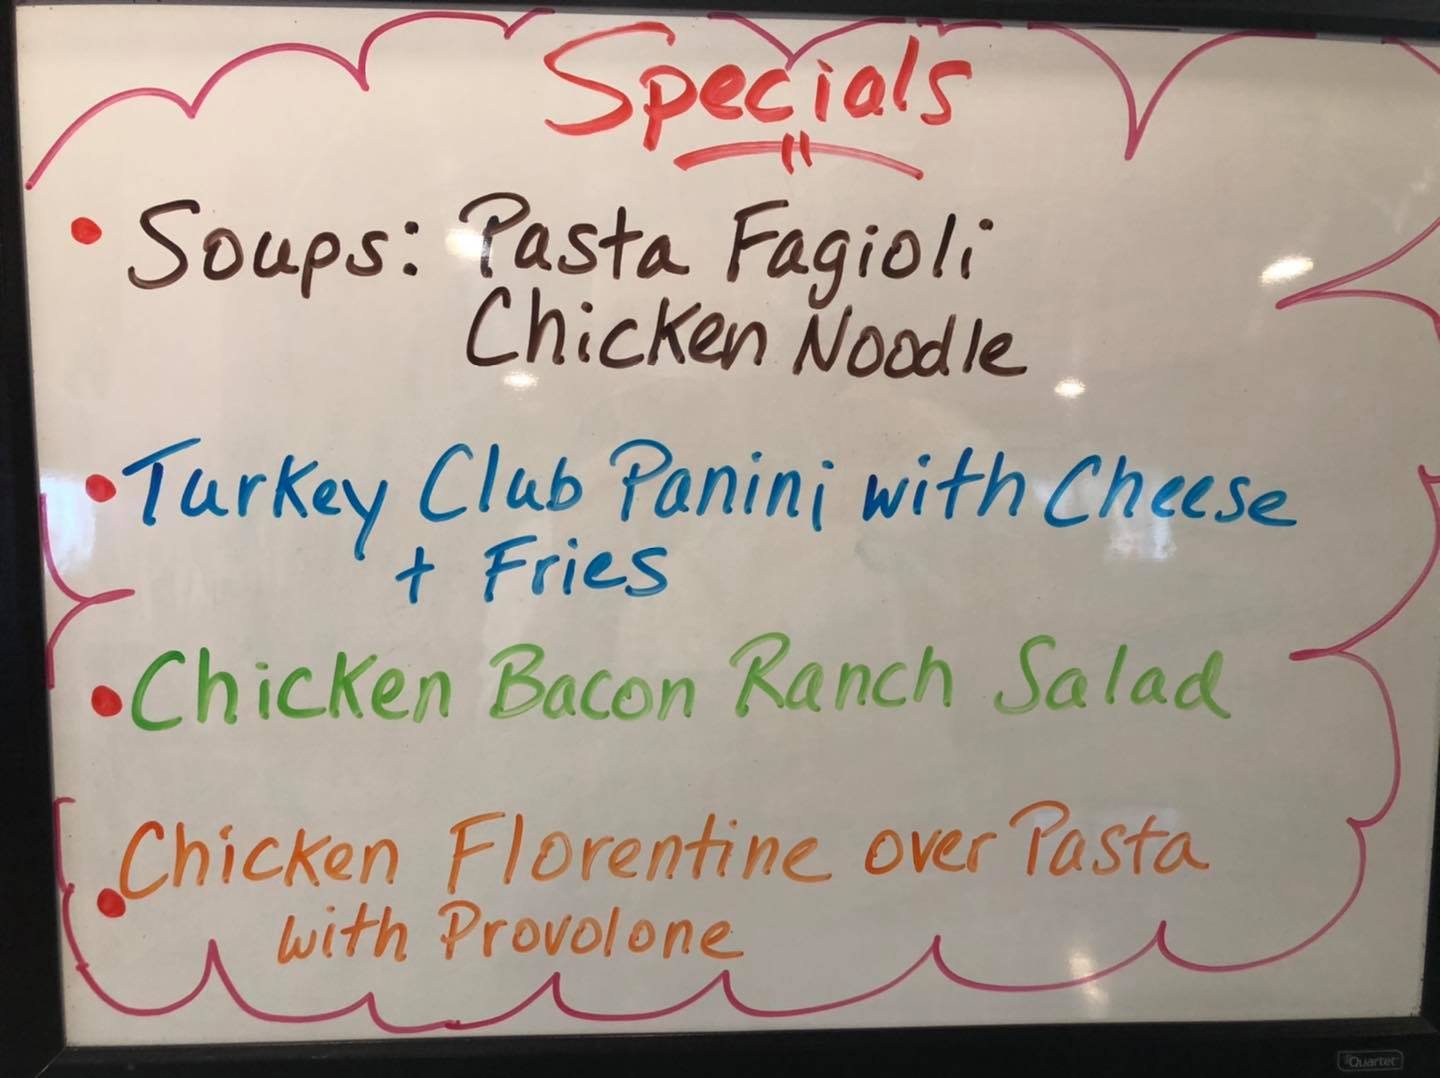 Specials
• Soups: Pasta Fagioli
Chicken Noodle
• Turkey Club Panini with Cheese
+ Fries
• Chicken Bacon Ranch Salad
• Chicken Florentine over Pasta
with Provolone
Quartet